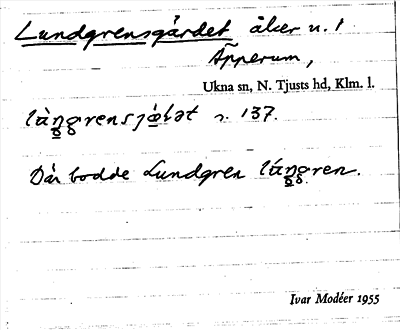 Lundgrensgärdet åker u. 1
Äpperum,
Ukna sn, N. Tjusts hd, Klm. l.
s. 137.
Där bodde Lundgren
Ivar Modéer 1955